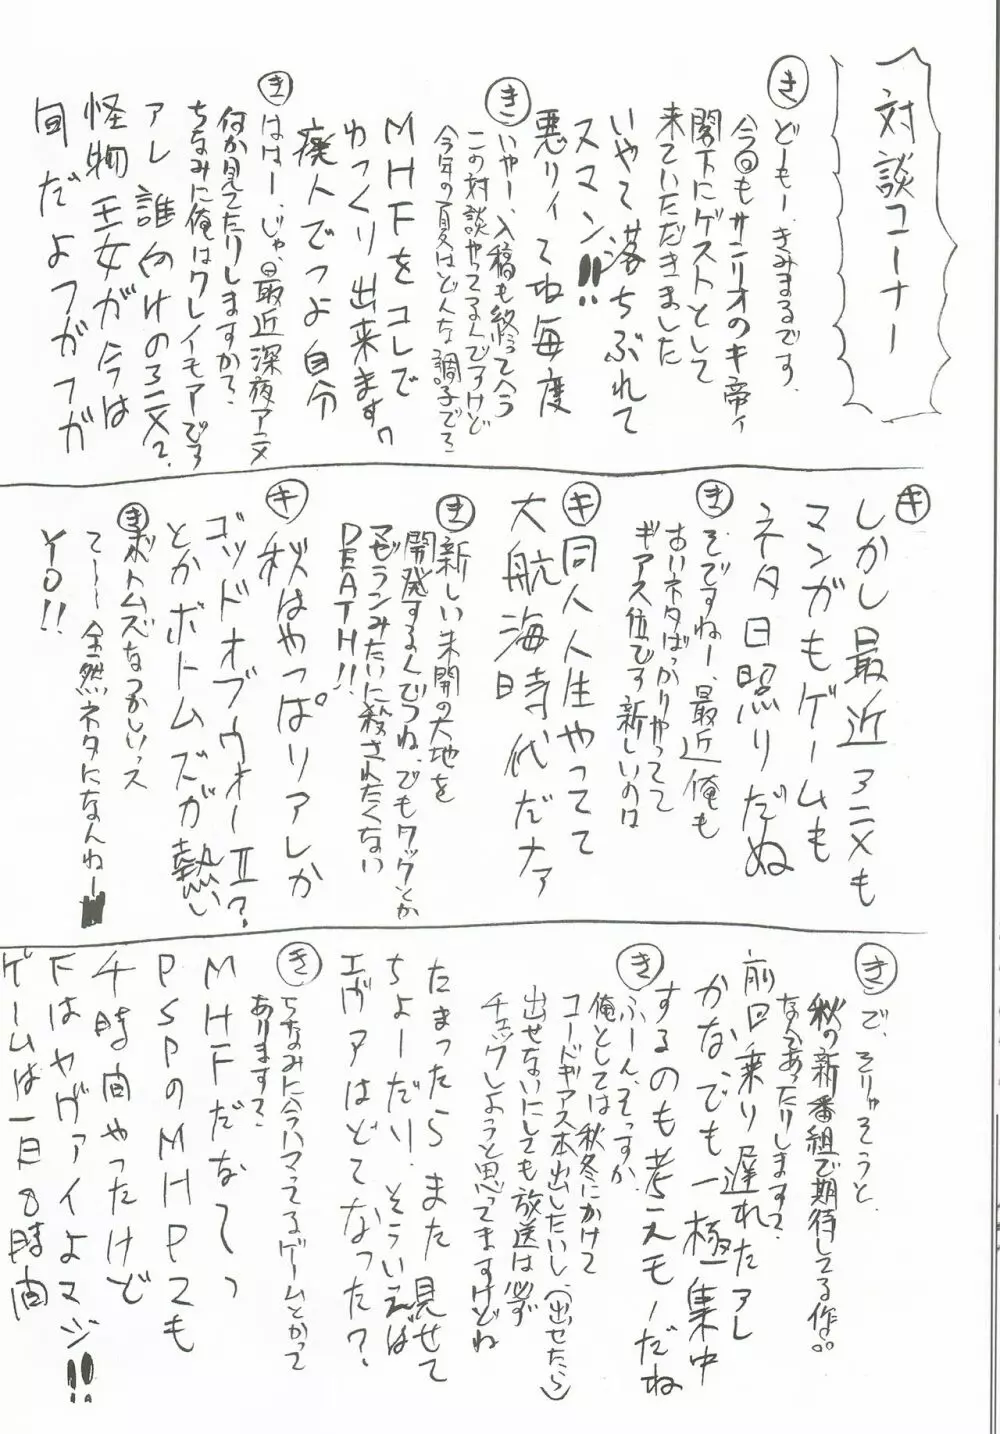 対談コーナー
き どーもー、きみまるです。
今回もサンリオのキ帝ィ
閣下にゲストとして
来ていただきました
いやて落ちぶれて
スマン!!
悪リィてね毎度
き いやー、入稿も終ってへう
この対談やってるんですけど
今年の夏はどんな調子でろ
MHFをコレで
ゆっくり出来ます。
廃人でつよ自分
き はは—、じゃ、最近深夜アニメ
何か見てたりしますか?
ちなみに俺はクレイモアでろ
アレ誰向けのアニメ?
怪物王女が今は
旬だよフガフガ
キ しかし最近アニメも
マンガもゲームも
ネタ日照りだぬ
き そですねー、最近俺も
古いネタばっかりやってて
ギアス位です新しいのは
キ 同人人生やってて
大航海時代だナァ
き 新しい未開の大地を
開発するんでつね、でもクックとか
マゼランみたいに殺されたくない
DEATH!!
キ 秋はやっぱりアレしか
ゴッドオブウォーⅡ?
とかボトムズが熱い
き ボトムズなつかしいっス
て〜〜全然ネタになんねー
YO!!
き で、そりゃそうと、
秋の新番組で期待してる作。。
なんてあったりします?
前回乗り遅れたアレ
かな、でも一極集中
するのも考えモノだね
き ふーん、そっすか
俺としては秋冬にかけて
コードギアス本出したいし、(出せたら)
出せないにしても放送は必ず
チェックしようと思ってますけどね
たまったらまた見せて
ちょーだい、そういえば
エヴァはどてなった?
き ちなみに今ハマってるゲームとかって
あります?
MHFだなてっ
PSPのMHP2も
千時間やったけど
Fはヤヴァイよマジ!!
ゲームは一日8時間